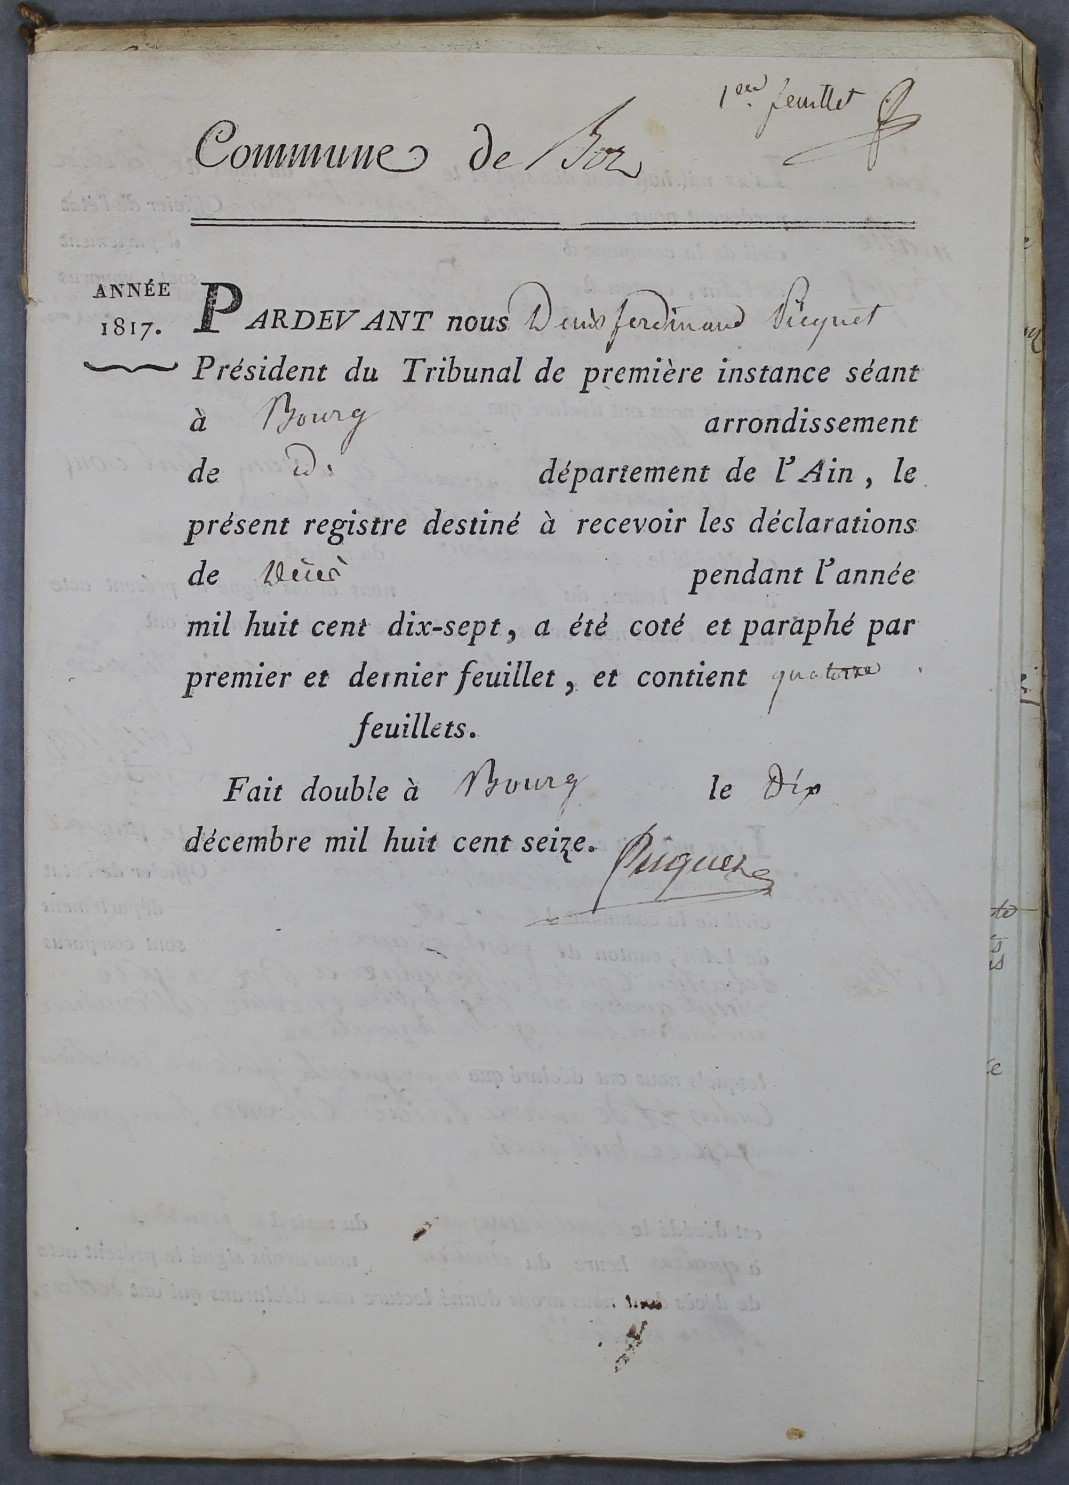 1er feuillet
Commune de Boz
ANNÉE
1817.
PARDEVANT nous Denis ferdinand Picquet
Président du Tribunal de première instance séant
à Bourg arrondissement
de département de l'Ain, le
présent registre destiné à recevoir les déclarations
de Décès pendant l'année
mil huit cent dix-sept, a été coté et paraphé par
premier et dernier feuillet, et contient quatorze
feuillets.
Fait double à Bourg le Dix
décembre mil huit cent seize.
Picquet